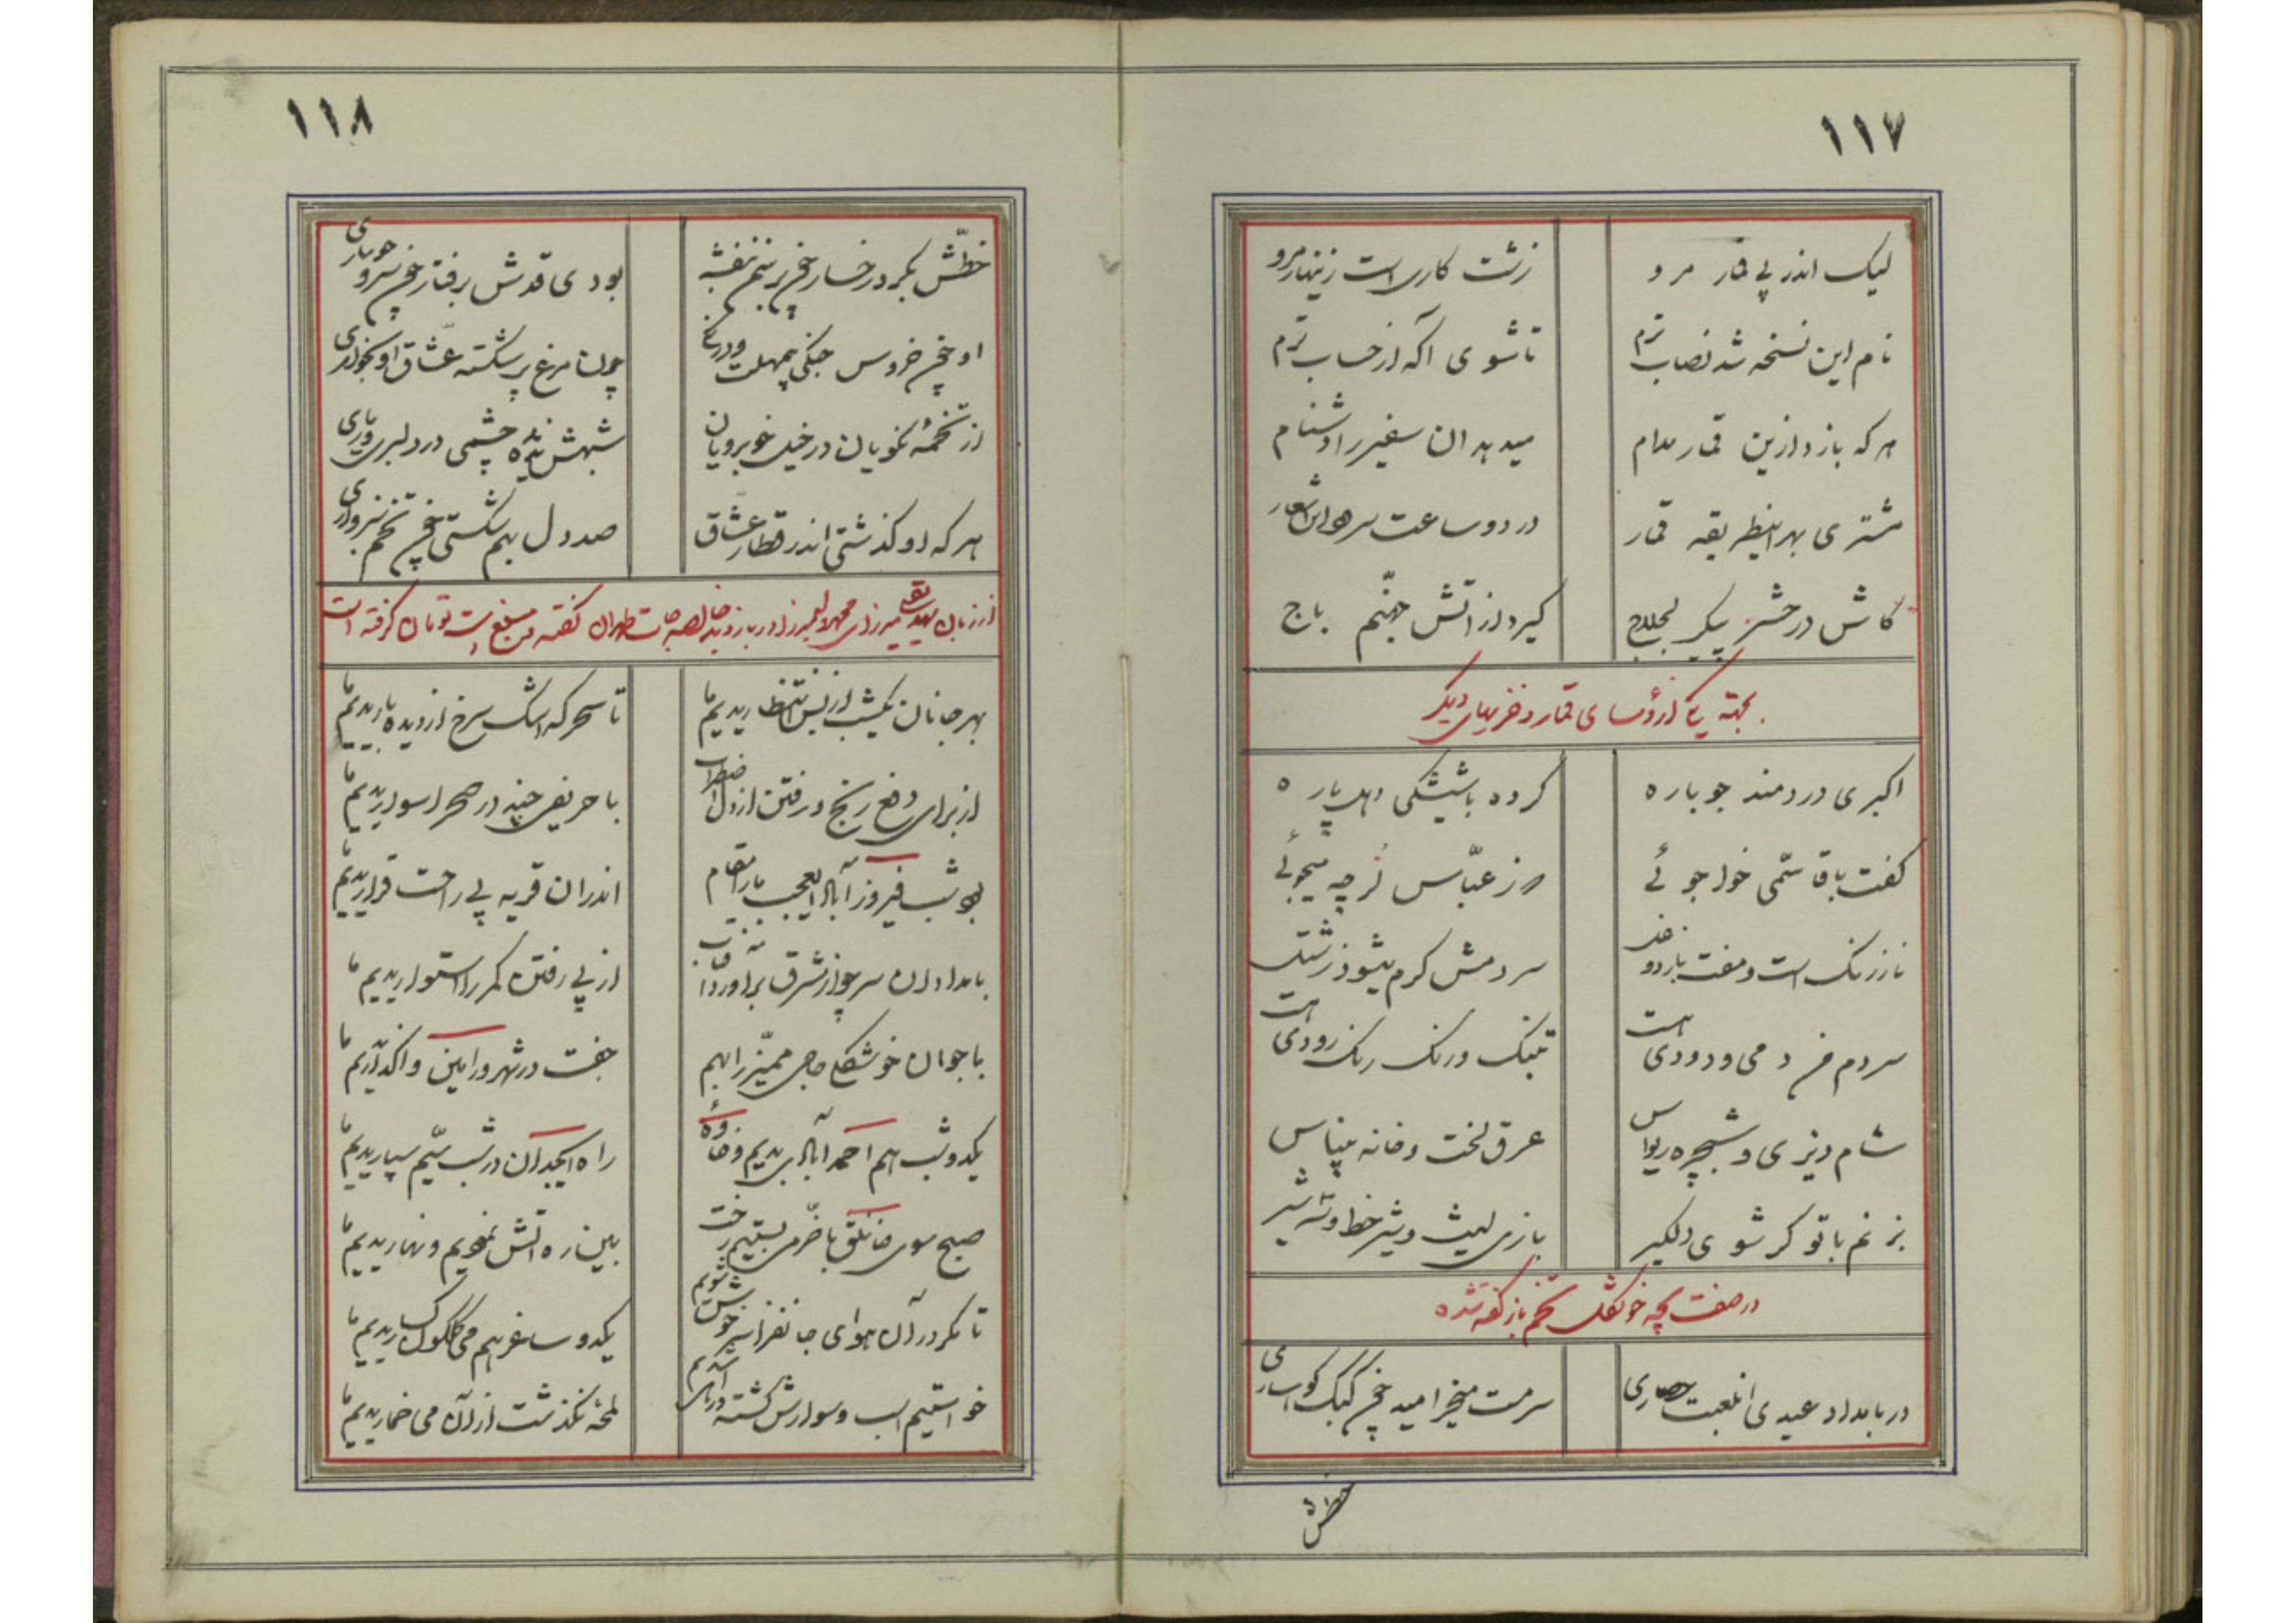 ۱۱۷
لیک اندر پی قمار مرو زشت کاری است زینهار مرو
نام این نسخه شد نصاب ترم تا شوی آگه از حساب ترم
هر که بازد ازین قمار مدام میدهد ان سفیر را دشنام
مشتری بهر اینطریقه قمار در دو ساعت سرود این اشعار
کاش در حشر پیکر لجلاج گیرد از آتش جهنّم باج
بجهة یکی از رؤسای قمار و خرابهای دیگر
اکبری دردمند جوباره کرده باشیشکی دهل پاره
گفت با قاسمی خواجوئی رز عبّاس نرچه میجوئی
سردمش گرم میشود زرشتک
سردم من دمی و دودی است تنبک و رنگ رنگ رودی است
شام دیزی و شبچره ریواس عرق لخت و خانه پیناس
بزنم با تو گر شوی دلگیر بازی لیث و شیر خط و شه شیر
در صفت بچه خوشگل تخم باز گفته شده
در بامداد عیدی انلعبت حصاری سرمست میخرامید خچر کبک کوهساری
خطش
۱۱۸
خطّش بگرد رخسار خچر بر سنم بنفشه بودی قدش برفتار خچر سرو جویباری
او خچر خروس جنگی بیمهلت و درنگی چون مرغ پر شکسته عشّاق او بخواری
از تخمهٔ نکویان در خیل خوبرویان شبهش ندیده چشمی در دلبری و یاری
هر که او گذشتی اندر قطار عشّاق صد دل بهم شکستی خچر تخم سبزواری
بهر جانان یکشب از بس انتظاریدیم ما تا سحرگه اشک سرخ از دیده باریدیم ما
از برای دفع رنج و رفتن از دل اضطراب با حریفی چند در صحرا سواریدیم ما
بود شب فیروزآباد العجب ما را مقام اندر ان قریه پی راحت قراریدیم ما
بامدادان سر چو از شرق برآورد آفتاب از پی رفتن کمر را استواریدیم ما
با جوان خوشگل حاجی ممیّز را بهم جفت در شهر ورامین واگذاریدیم ما
یکدو شب هم احمدآباد بدیم و خاوهٔ راه ایجدان در شب سیّم سپاریدیم ما
صبح سوی خانلق با خرّمی بستیم رخت بین ره آتش نمودیم و نهاریدیم ما
تا مگر در آن هوای جانفزا سرخوش شویم یکدو ساغر هم می گلگون گساریدیم ما
لمحه نگذشت از آن می خماریدیم ما